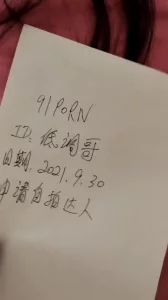 91PORN
ID:低调哥
日期.2021.9.30
申请自拍达人